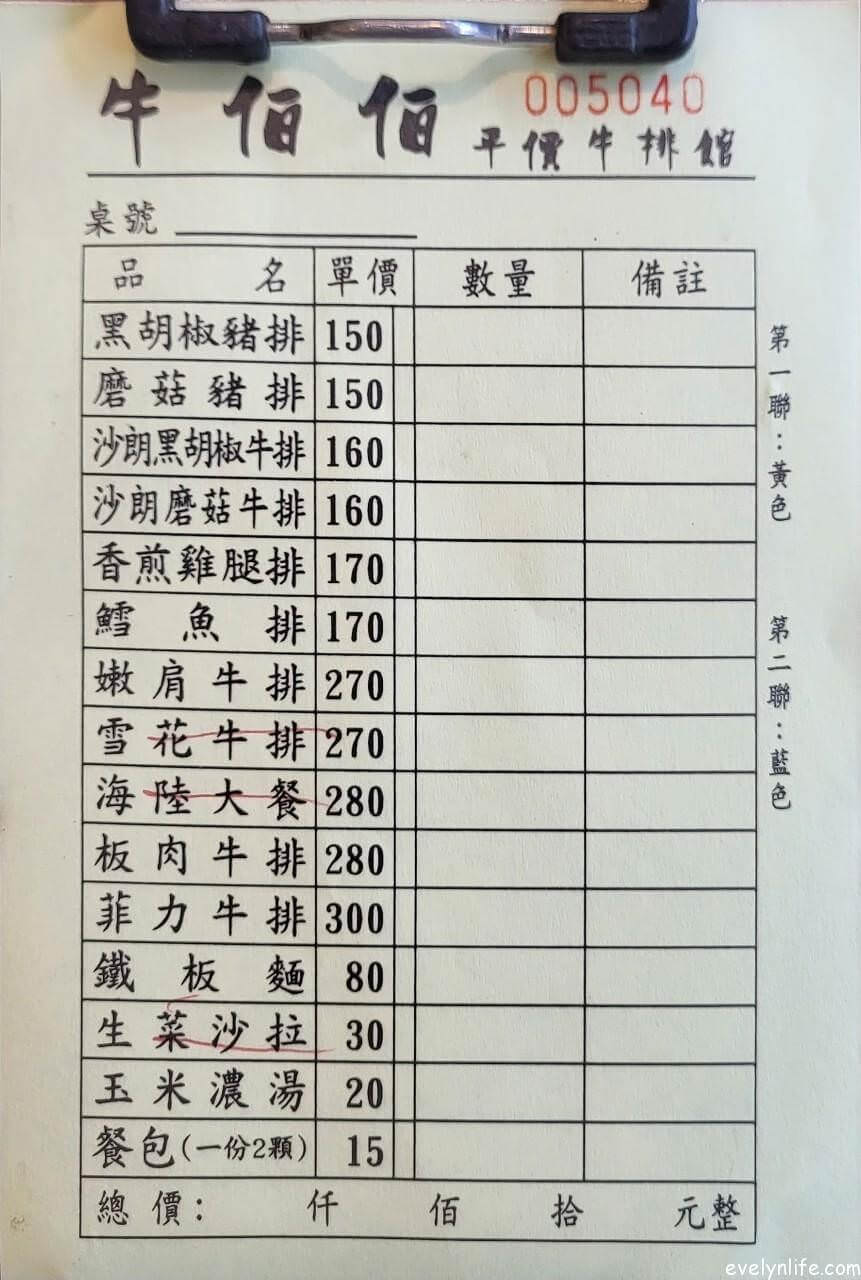 牛佰佰 005040
平價牛排館
桌號
品名 單價 數量 備註
黑胡椒豬排 150
磨菇豬排 150
沙朗黑胡椒牛排 160
沙朗磨菇牛排 160
香煎雞腿排 170
鱈魚排 170
嫩肩牛排 270
雪花牛排 270
海陸大餐 280
板肉牛排 280
菲力牛排 300
鐵板麵 80
生菜沙拉 30
玉米濃湯 20
餐包(一份2顆) 15
總價: 仟 佰 拾 元整
第一聯:黃色
第二聯:藍色
evelynlife.com